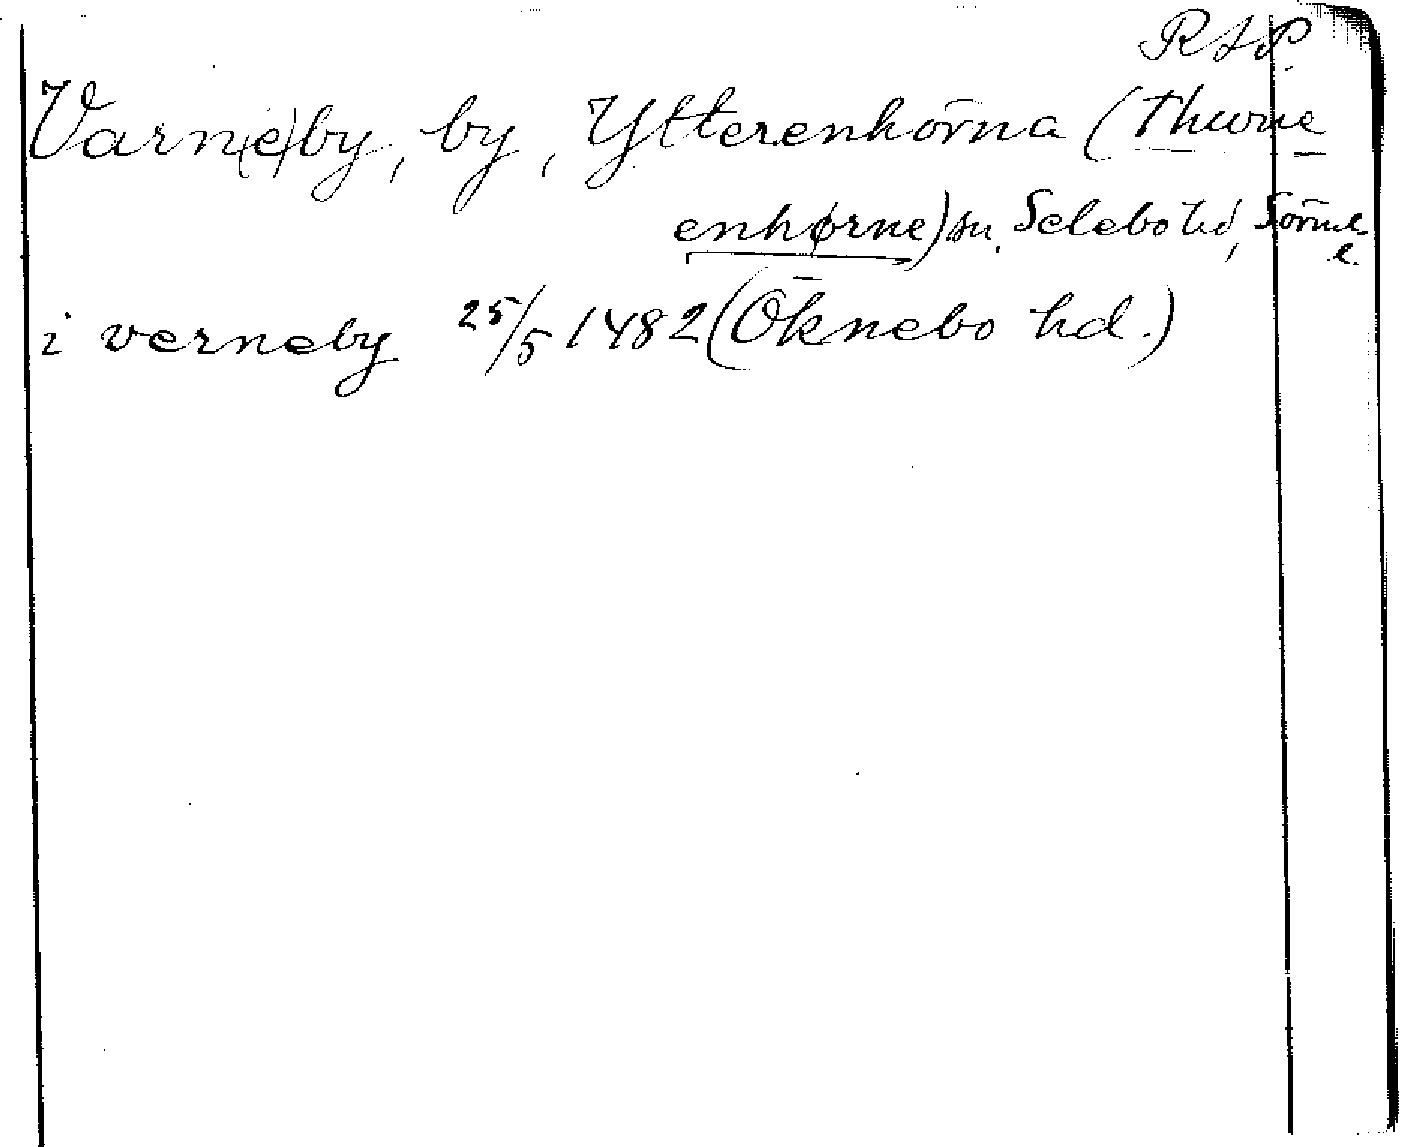 RAP.
Varn(e)by, by, Ytterenhörna (Thuvne
enhørne) sn. Selebo hd, Sörml
e.
i verneby 25/5 1482 (Öknebo hd.)